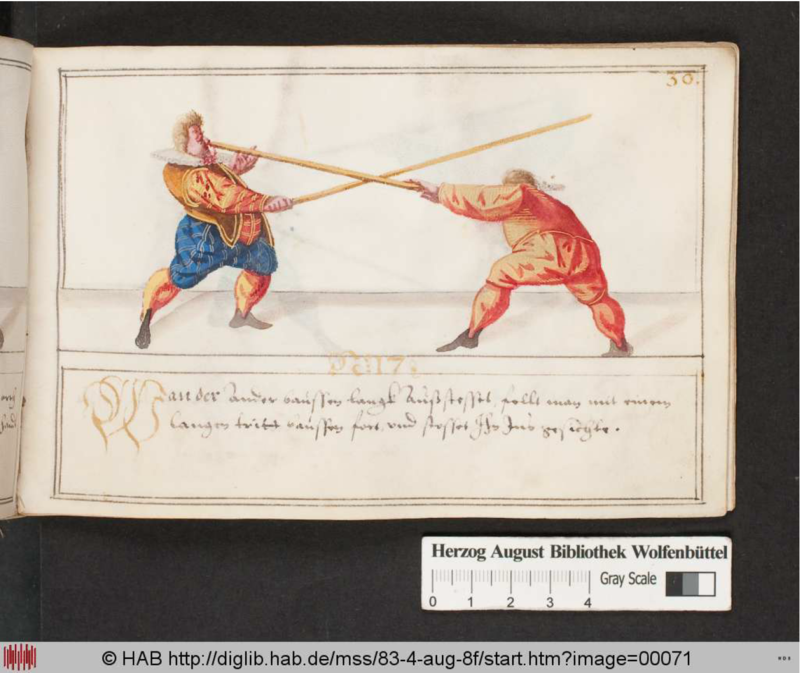 30.
N: 17:
Wan der Ander daussen langk Außstosset, fellt man mit einem
langen tritt daussen fort, und stosset Ihn Ins gesichte.
Herzog August Bibliothek Wolfenbüttel
Gray Scale
0 1 2 3 4
© HAB http://diglib.hab.de/mss/83-4-aug-8f/start.htm?image=00071